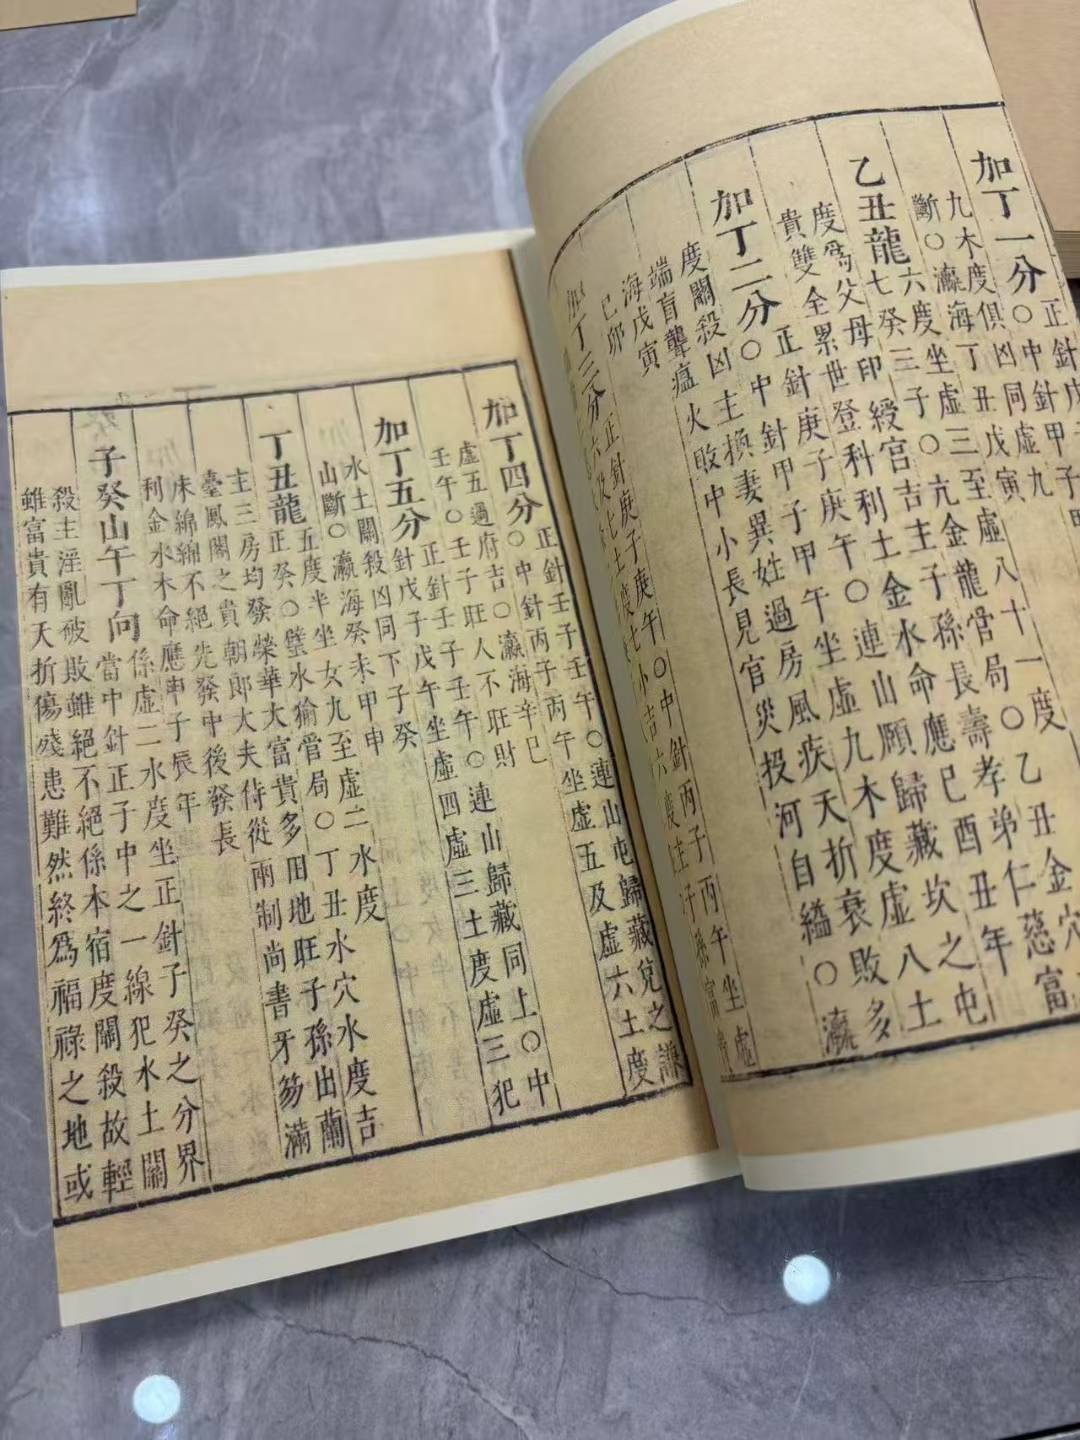 加丁一分
正針庚子
○中針甲子
九木度俱凶同虛九
斷○瀛海丁丑戊寅
六度坐虛三至虛八十一○乙丑金穴
乙丑龍
七癸三子○亢金龍管局○
度為父母印綬官吉主子孫長壽孝弟仁慈富
貴雙全累世登科利土金水命應巳酉丑年
加丁二分
正針庚子庚午○連山願歸藏坎之屯
○中針甲子甲午坐虛九木度虛八土
度關殺凶主換妻異姓過房風疾夭折衰敗多
端盲聾瘟火敗中小長見官災投河自縊○瀛
海戊寅
己卯
加丁三分
正針庚子庚午○中針丙子丙午坐虛
加丁四分
正針壬子壬午○連山屯歸藏兌之謙
○中針丙子丙午坐虛五及虛六土度
虛五過府吉○瀛海辛巳
壬午○壬子旺人不旺財
加丁五分
正針壬子壬午○連山歸藏同上○中
針戊子戊午坐虛四虛三土度虛三犯
水土關殺凶同下子癸
山斷○瀛海癸未甲申
丁丑龍
五度半坐女九至虛二水度
正癸○璧水㺄管局○丁丑水穴水度吉
主三房均發榮華大富貴多田地旺子孫出蘭
臺鳳閣之貴朝郎大夫侍從兩制尚書牙笏滿
床綿綿不絕先發中後發長
利金水木命應申子辰年
子癸山午丁向
係虛二水度坐正針子癸之分界
當中針正子中之一線犯水土關
殺主淫亂破敗雖絕不絕係本宿度關殺故輕
雖富貴有夭折傷殘患難然終為福祿之地或